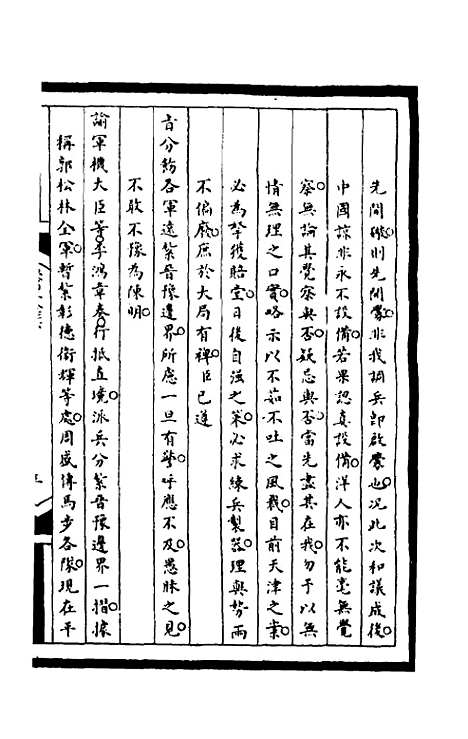 先開礮則先開釁非我調兵即啟釁也况此次和議成後
中國諒非永不設備若果認真設備洋人亦不能毫無覺
察無論其覺察與否疑忌與否當先盡其在我勿予以無
情無理之口實略示以不茹不吐之風裁目前天津之案
必為拏獲賠堂日後自強之策必求練兵製器理與勢兩
不偏廢庶於大局有裨臣已遵
旨分飭各軍遠紮晉豫邊界所慮一旦有警呼應不及愚昧之見
不敢不豫為陳明
諭軍機大臣等李鴻章奏行抵直境派兵分紮晉豫邊界一摺據
稱郭松林全軍暫紮彰德衛輝等處周盛傳馬步各隊現在平